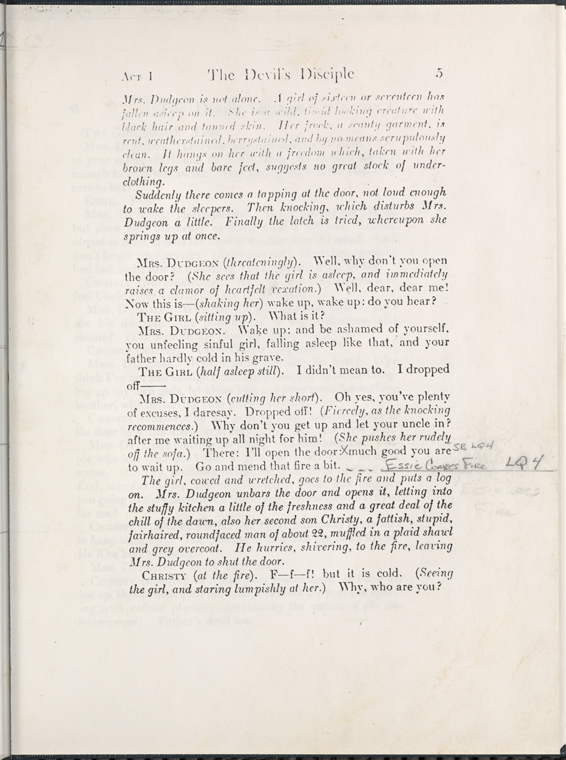 Act I The Devil's Disciple 5
Mrs. Dudgeon is not alone. A girl of sixteen or seventeen has
fallen asleep on it. She is a wild, timid looking creature with
black hair and tanned skin. Her frock, a scanty garment, is
rent, weatherstained, berrystained, and by no means scrupulously
clean. It hangs on her with a freedom which, taken with her
brown legs and bare feet, suggests no great stock of under-
clothing.
Suddenly there comes a tapping at the door, not loud enough
to wake the sleepers. Then knocking, which disturbs Mrs.
Dudgeon a little. Finally the latch is tried, whereupon she
springs up at once.
Mrs. Dudgeon (threateningly). Well, why don't you open
the door? (She sees that the girl is asleep, and immediately
raises a clamor of heartfelt vexation.) Well, dear, dear me!
Now this is—(shaking her) wake up, wake up: do you hear?
The Girl (sitting up). What is it?
Mrs. Dudgeon. Wake up; and be ashamed of yourself,
you unfeeling sinful girl, falling asleep like that, and your
father hardly cold in his grave.
The Girl (half asleep still). I didn't mean to. I dropped
off——
Mrs. Dudgeon (cutting her short). Oh yes, you've plenty
of excuses, I daresay. Dropped off! (Fiercely, as the knocking
recommences.) Why don't you get up and let your uncle in?
after me waiting up all night for him! (She pushes her rudely
off the sofa.) There: I'll open the door: much good you are SB LQ4
to wait up. Go and mend that fire a bit. Essie Crosses Fire LQ 4
The girl, cowed and wretched, goes to the fire and puts a log
on. Mrs. Dudgeon unbars the door and opens it, letting into
the stuffy kitchen a little of the freshness and a great deal of the
chill of the dawn, also her second son Christy, a fattish, stupid,
fairhaired, roundfaced man of about 22, muffled in a plaid shawl
and grey overcoat. He hurries, shivering, to the fire, leaving
Mrs. Dudgeon to shut the door.
Christy (at the fire). F—f—f! but it is cold. (Seeing
the girl, and staring lumpishly at her.) Why, who are you?